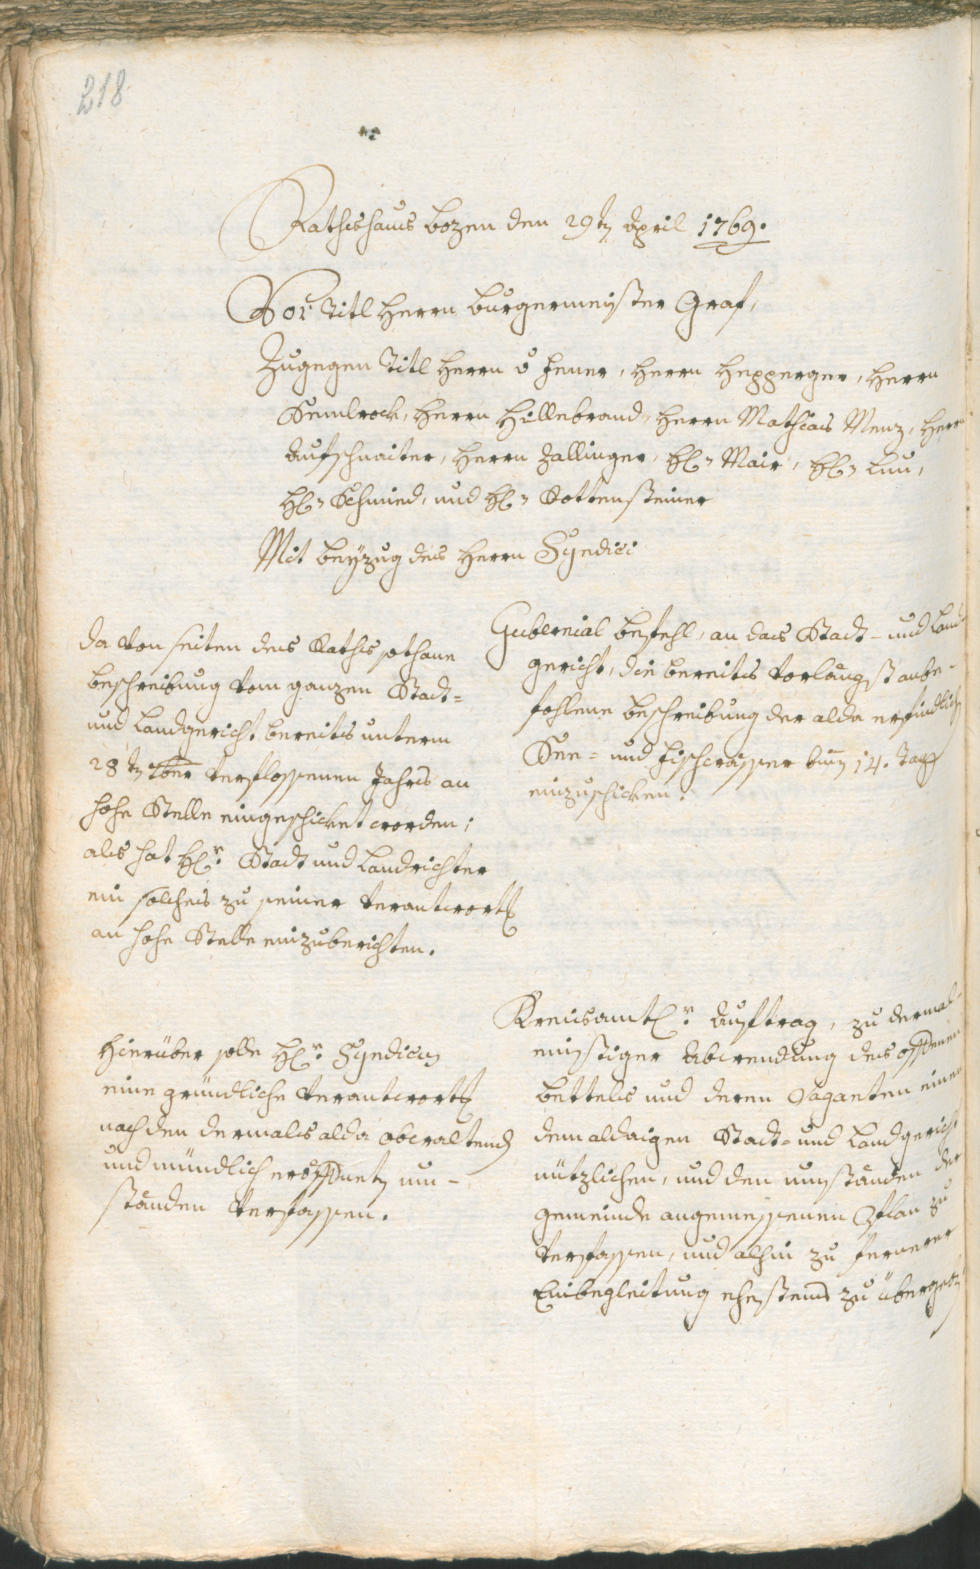 218
Rathshaus bozen den 29tn April 1769.
Vor Titl Herrn burgermeister Graf,
Zugegen Titl Herrn v Jener, Herrn Hepperger, Herrn
Kemlrock, Herrn Hillebrand, Herrn Mathias Menz, Herrn
Aufschnaiter, Herrn Zallinger, H: Mair, H: Luu,
H: Schmid, und H: Rottensteiner
Mit beÿzug des Herrn Syndici
Gubernial befehl, an das Stadt- und Land
gericht, die bereits vorlängst anbe-
fohlene beschreibung der alda erfindlich
See- und fischwässer binn 14. Tag
einzuschicken.
da von seiten des Raths sothane
beschreibung vom ganzen Stadt-
und Landgericht bereits unterm
28 tn verflossenen Jahrs an
hohe Stelle eingeschicket worden;
als hat H:r Stadt und Landrichter
ein solches zu seiner verantwort
an hohe Stelle einzuberichten.
Kreisamt: Auftrag, zu dermal-
einstiger Abwendung des offenen
bettels und deren Vaganten einen
dem aldaigen Stadt- und Landgericht
nützlichen, und den umständen der
gemeinde angemessenen Plan zu
verfassen, und alhin zu fernerer
Einbegleitung ehestens zu übergeben
Hierüber solle H:r Syndicus
eine gründliche verantwort
nach den dermals alda obwaltend
und mündlich eröffnetn um-
ständen verfassen.